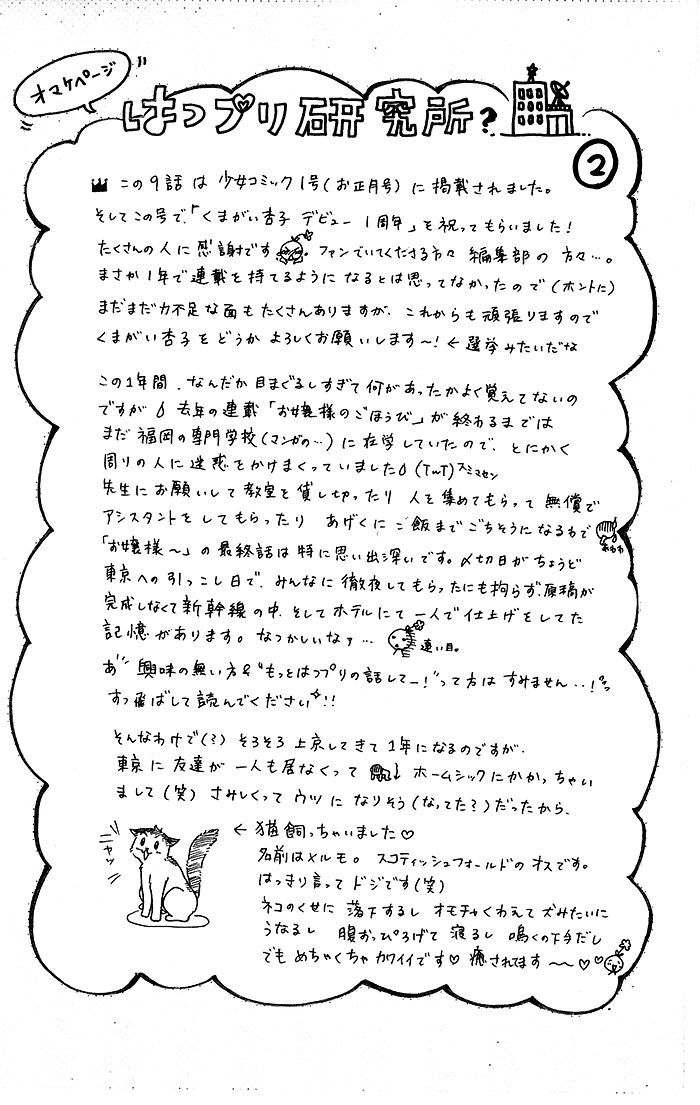 オマケページ
はつプリ研究所？
②
この9話は少女コミック1号(お正月号)に掲載されました。
そしてこの号で、「くまがい杏子 デビュー1周年」を祝ってもらいました！
たくさんの人に感謝です ファンでいてくださる方々 編集部の方々…。
まさか1年で連載を持てるようになるとは思ってなかったので(ホントに)
まだまだ力不足な面もたくさんありますが、これからも頑張りますので
くまがい杏子をどうかよろしくお願いします〜！←選挙みたいだな
この1年間、なんだか目まぐるしすぎて何があったかよく覚えてないの
ですが 去年の連載「お嬢様のごほうび」が終わるまでは
まだ福岡の専門学校(マンガの…)に在学していたので、とにかく
周りの人に迷惑をかけまくっていました(TwT)スミマセン
先生にお願いして教室を貸し切ったり 人を集めてもらって無償で
アシスタントをしてもらったり あげくにご飯までごちそうになるわで
おわわ
「お嬢様〜」の最終話は特に思い出深いです。〆切日がちょうど
東京への引っこし日で、みんなに徹夜してもらったにも拘らず、原稿が
完成しなくて新幹線の中、そしてホテルにて一人で仕上げをしてた
記憶があります。なつかしいなァ… 遠い目。
あ 興味の無い方&"もっとはつプリの話してー！"って方はすみません..！
すっ飛ばして読んでください!!
そんなわけで(？)そろそろ上京してきて1年になるのですが、
東京に友達が一人も居なくって ↓ ホームシックにかかっちゃい
まして(笑)さみしくってウツになりそう(なってた？)だったから、
←猫飼っちゃいました♡
ニャッ
名前はメルモ。スコティッシュフォールドのオスです。
はっきり言ってドジです(笑)
ネコのくせに落下するしオモチャくわえて犬みたいに
うなるし 腹おっぴろげて寝るし 鳴くの下手だし
でもめちゃくちゃカワイイです♡癒されてます〜〜♡♡